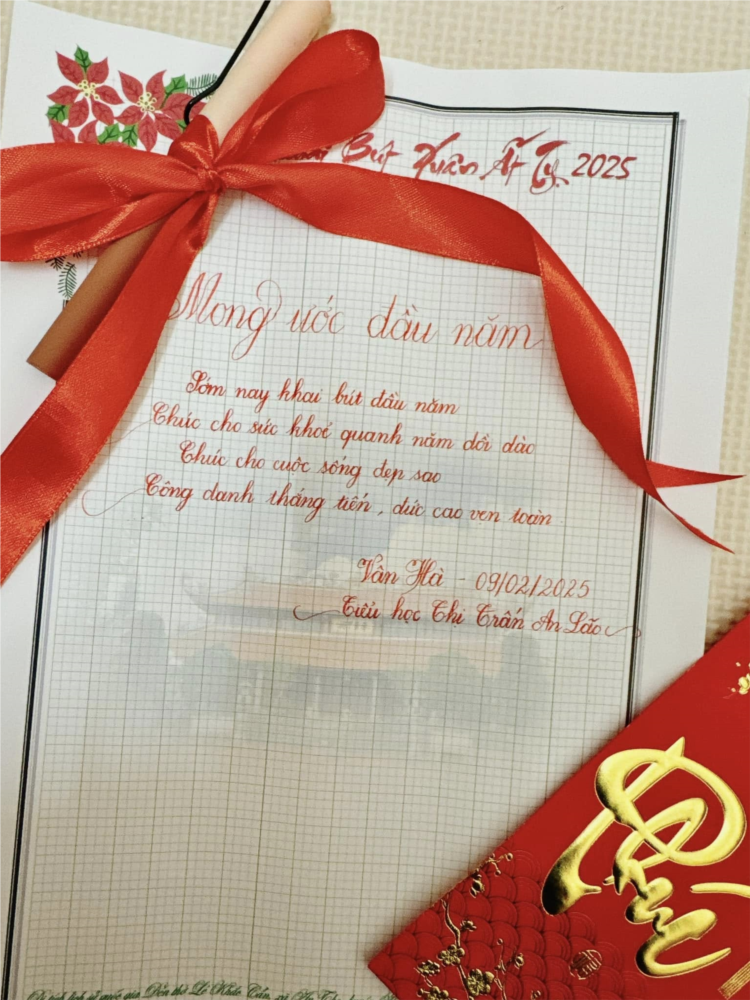 Bút Xuân Ất Tỵ 2025
Mong ước đầu năm
Sớm nay khai bút đầu năm
Chúc cho sức khoẻ quanh năm dồi dào
Chúc cho cuộc sống đẹp sao
Công danh thăng tiến, đức cao vẹn toàn
Vân Hà - 09/02/2025
Tiểu học Thị Trấn An Lão
Phúc
Di tích lịch sử quốc gia Đền thờ Lê Khắc Cẩn, xã An